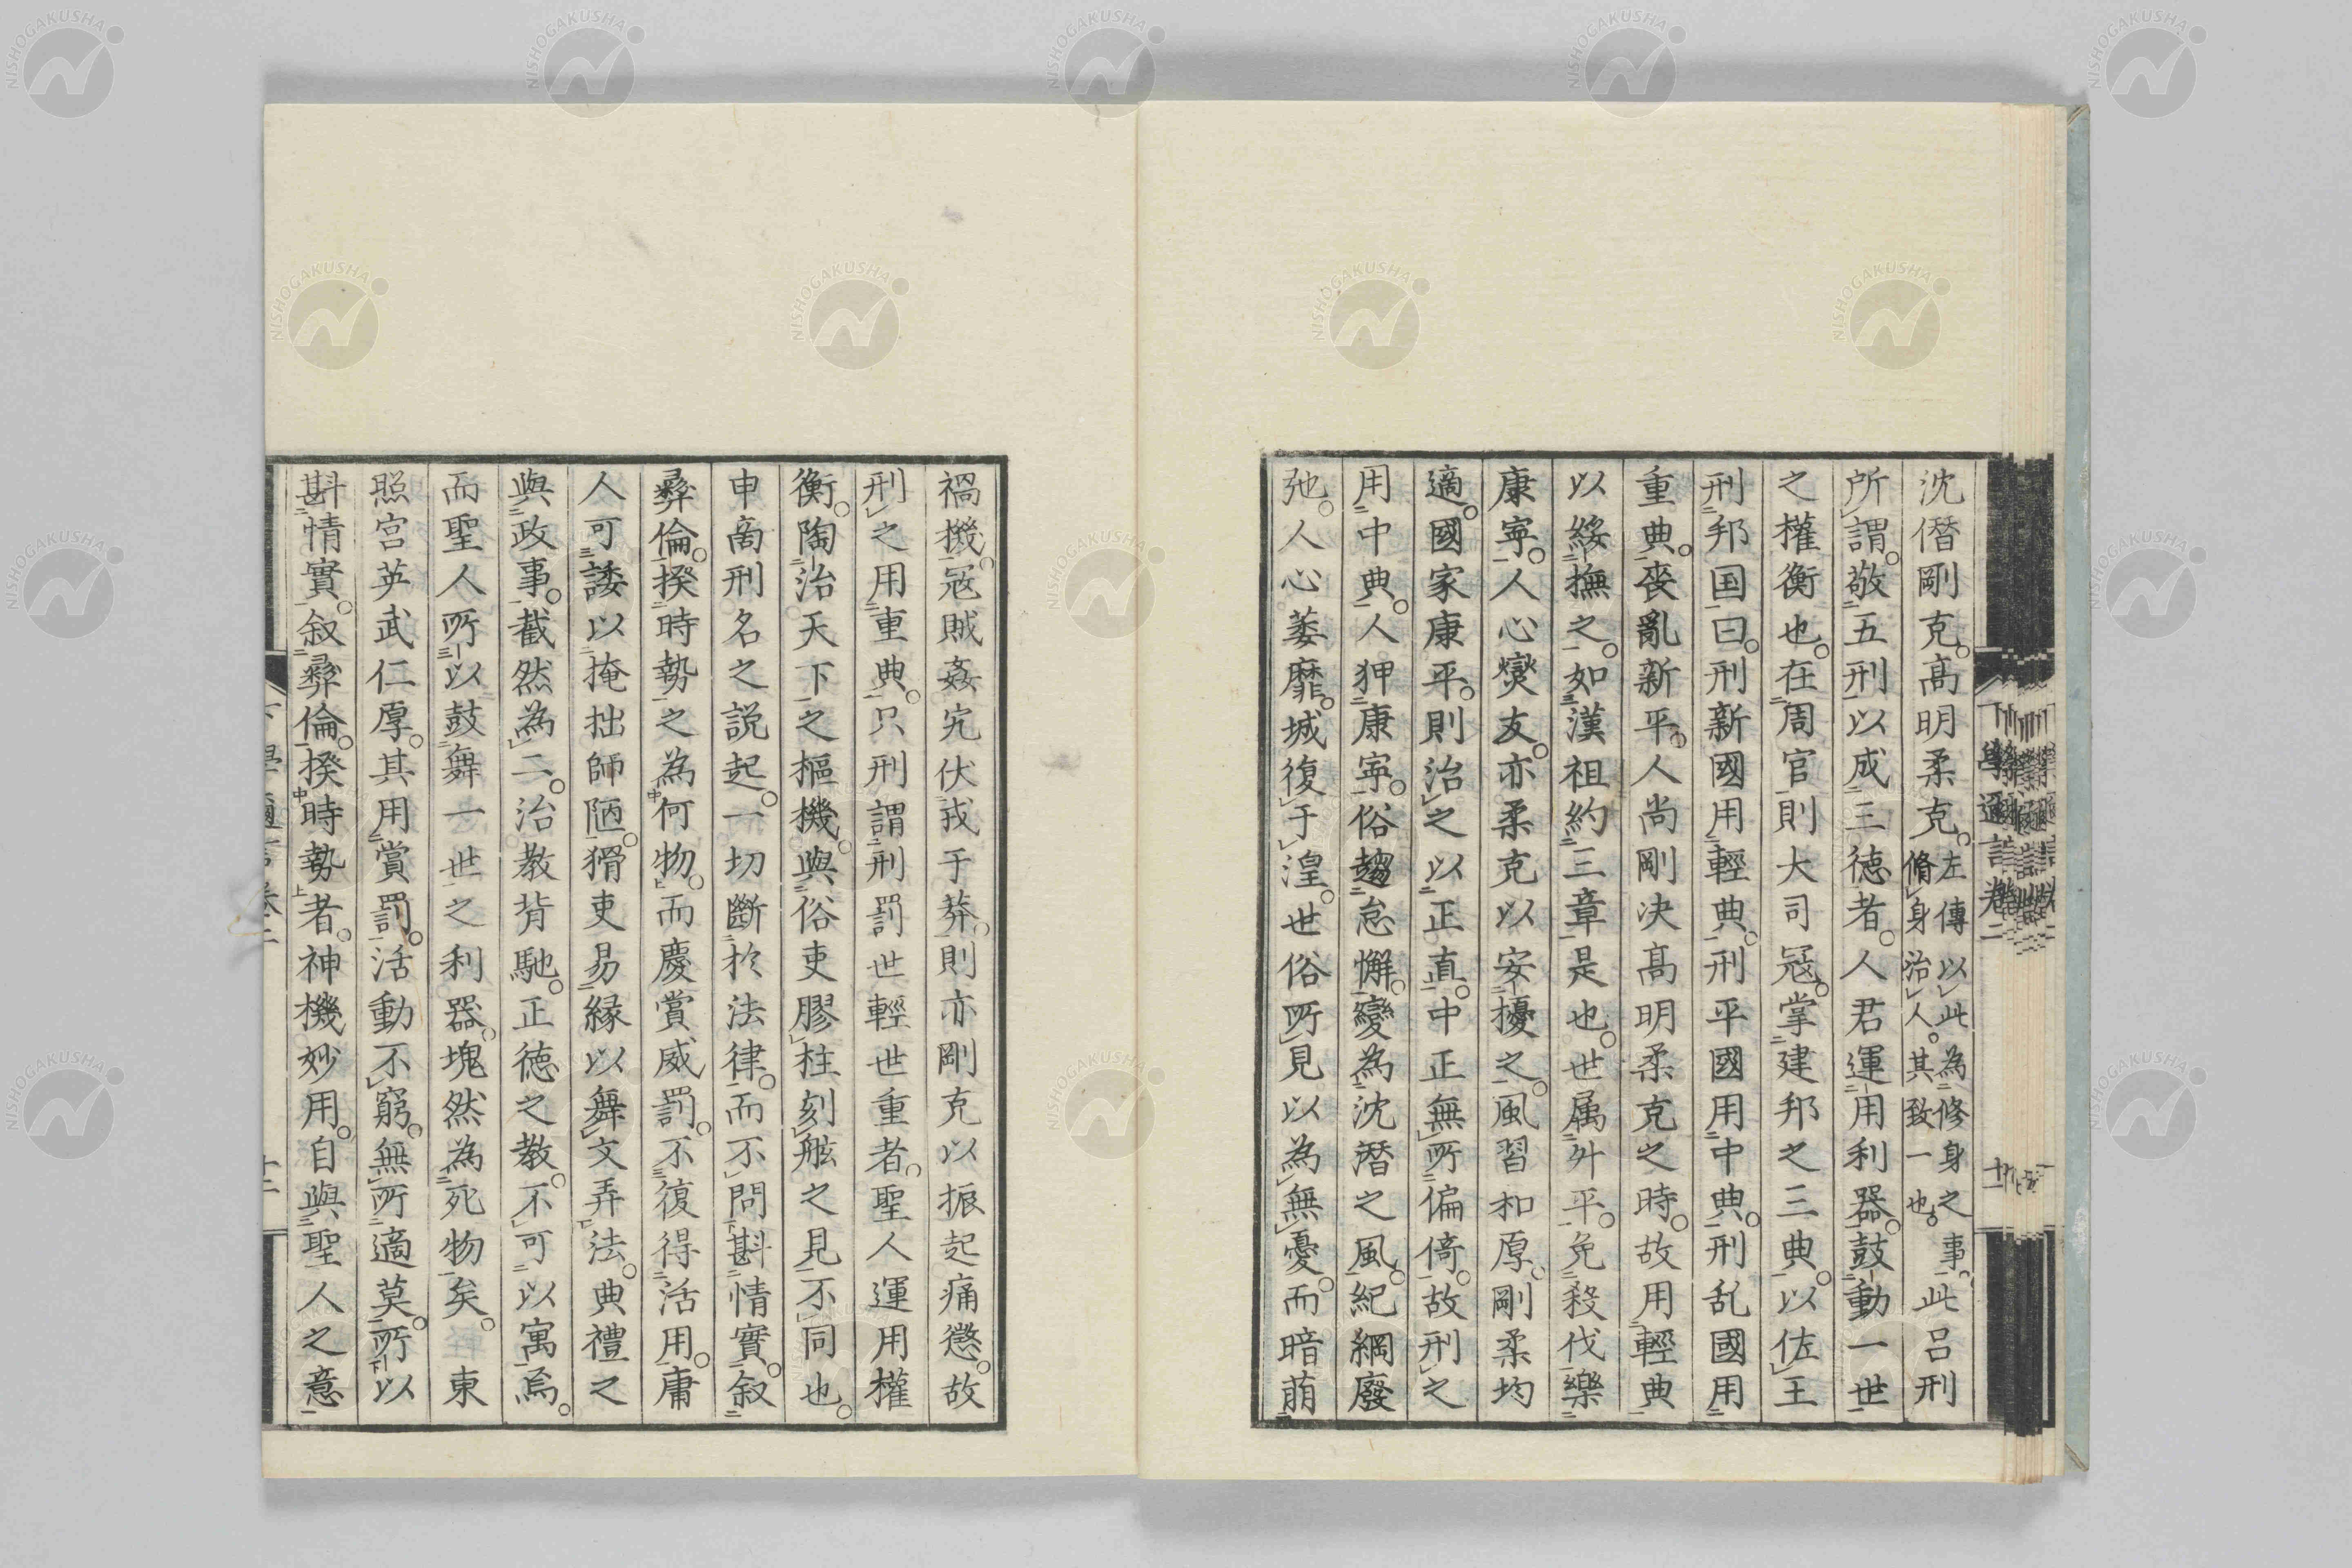 沈僭剛克。高明柔克。左傳以此為修身之事。脩身治人。其致一也。此呂刑
所謂。敬五刑以成三德者。人君運用利器。鼓動一世
之權衡也。在周官則大司冦。掌建邦之三典。以佐王
刑邦国曰。刑新國用輕典。刑平國用中典。刑乱國用
重典。喪亂新平。人尚剛决高明柔克之時。故用輕典
以綏撫之。如漢祖約三章是也。世属升平。免殺伐樂
康寧。人心爕友。亦柔克以安擾之。風習和厚。剛柔均
適。國家康平。則治之以正直。中正無所偏倚。故刑之
用中典。人狎康寧。俗趨怠懈。變為沈潜之風。紀綱廢
弛。人心萎靡。城復于湟。世俗所見以為無憂。而暗萠
禍機。冦賊姦宄伏戎于莽。則亦剛克以振起痛懲。故
刑之用重典。只刑謂刑罰世輕世重者。聖人運用權
衡。陶治天下之樞機。與俗吏膠柱刻舷之見不同也。
申商刑名之説起。一切斷於法律。而不問斟情實。叙
彛倫。揆時勢之為何物。而慶賞威罰。不復得活用。庸
人可諉以掩拙師陋。猾吏易縁以舞文弄法。典禮之
與政事。截然為二。治教背馳。正徳之教。不可以寓焉。
而聖人所以鼓舞一世之利器。塊然為死物矣。東
照宮英武仁厚。其用賞罰。活動不窮。無所適莫。所以
斟情實。叙彛倫。揆時勢者。神機妙用。自與聖人之意